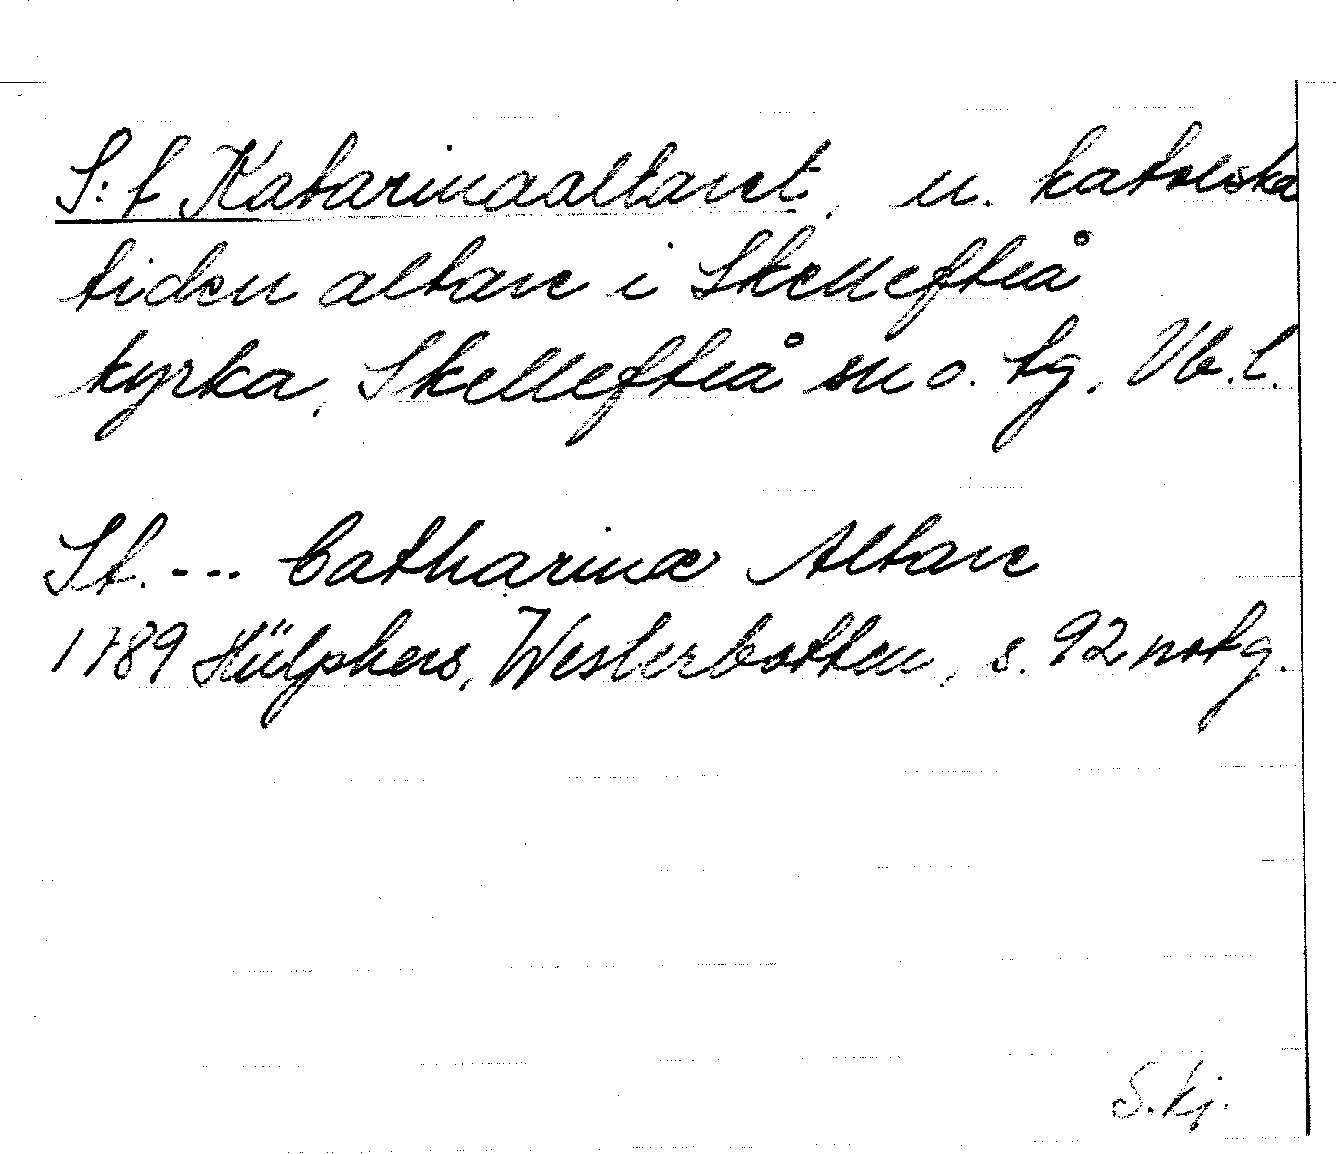 S:t Katarinaaltaret, u. katolska
tiden altare i Skellefteå
kyrka, Skellefteå sn o. tg, Vb.l.
St. --- Catharinæ Altare
1789 Hülphers, Westerbotten, s. 92 not g.
S. Kj.